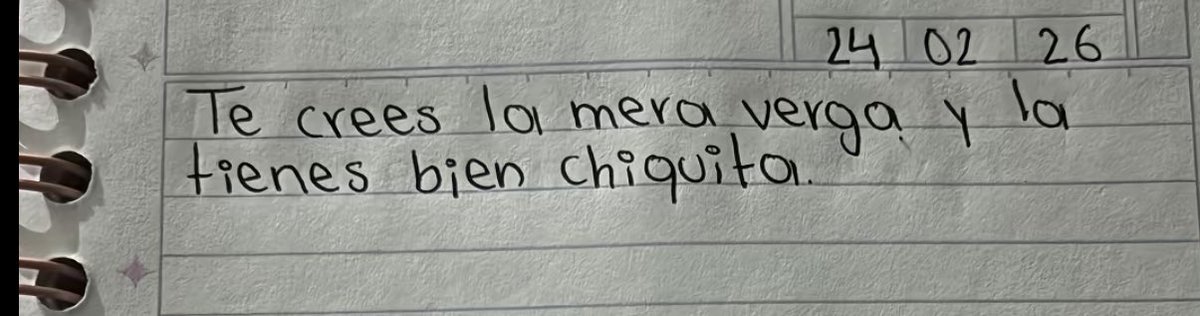 24 02 26
Te crees la mera verga y la
tienes bien chiquita.